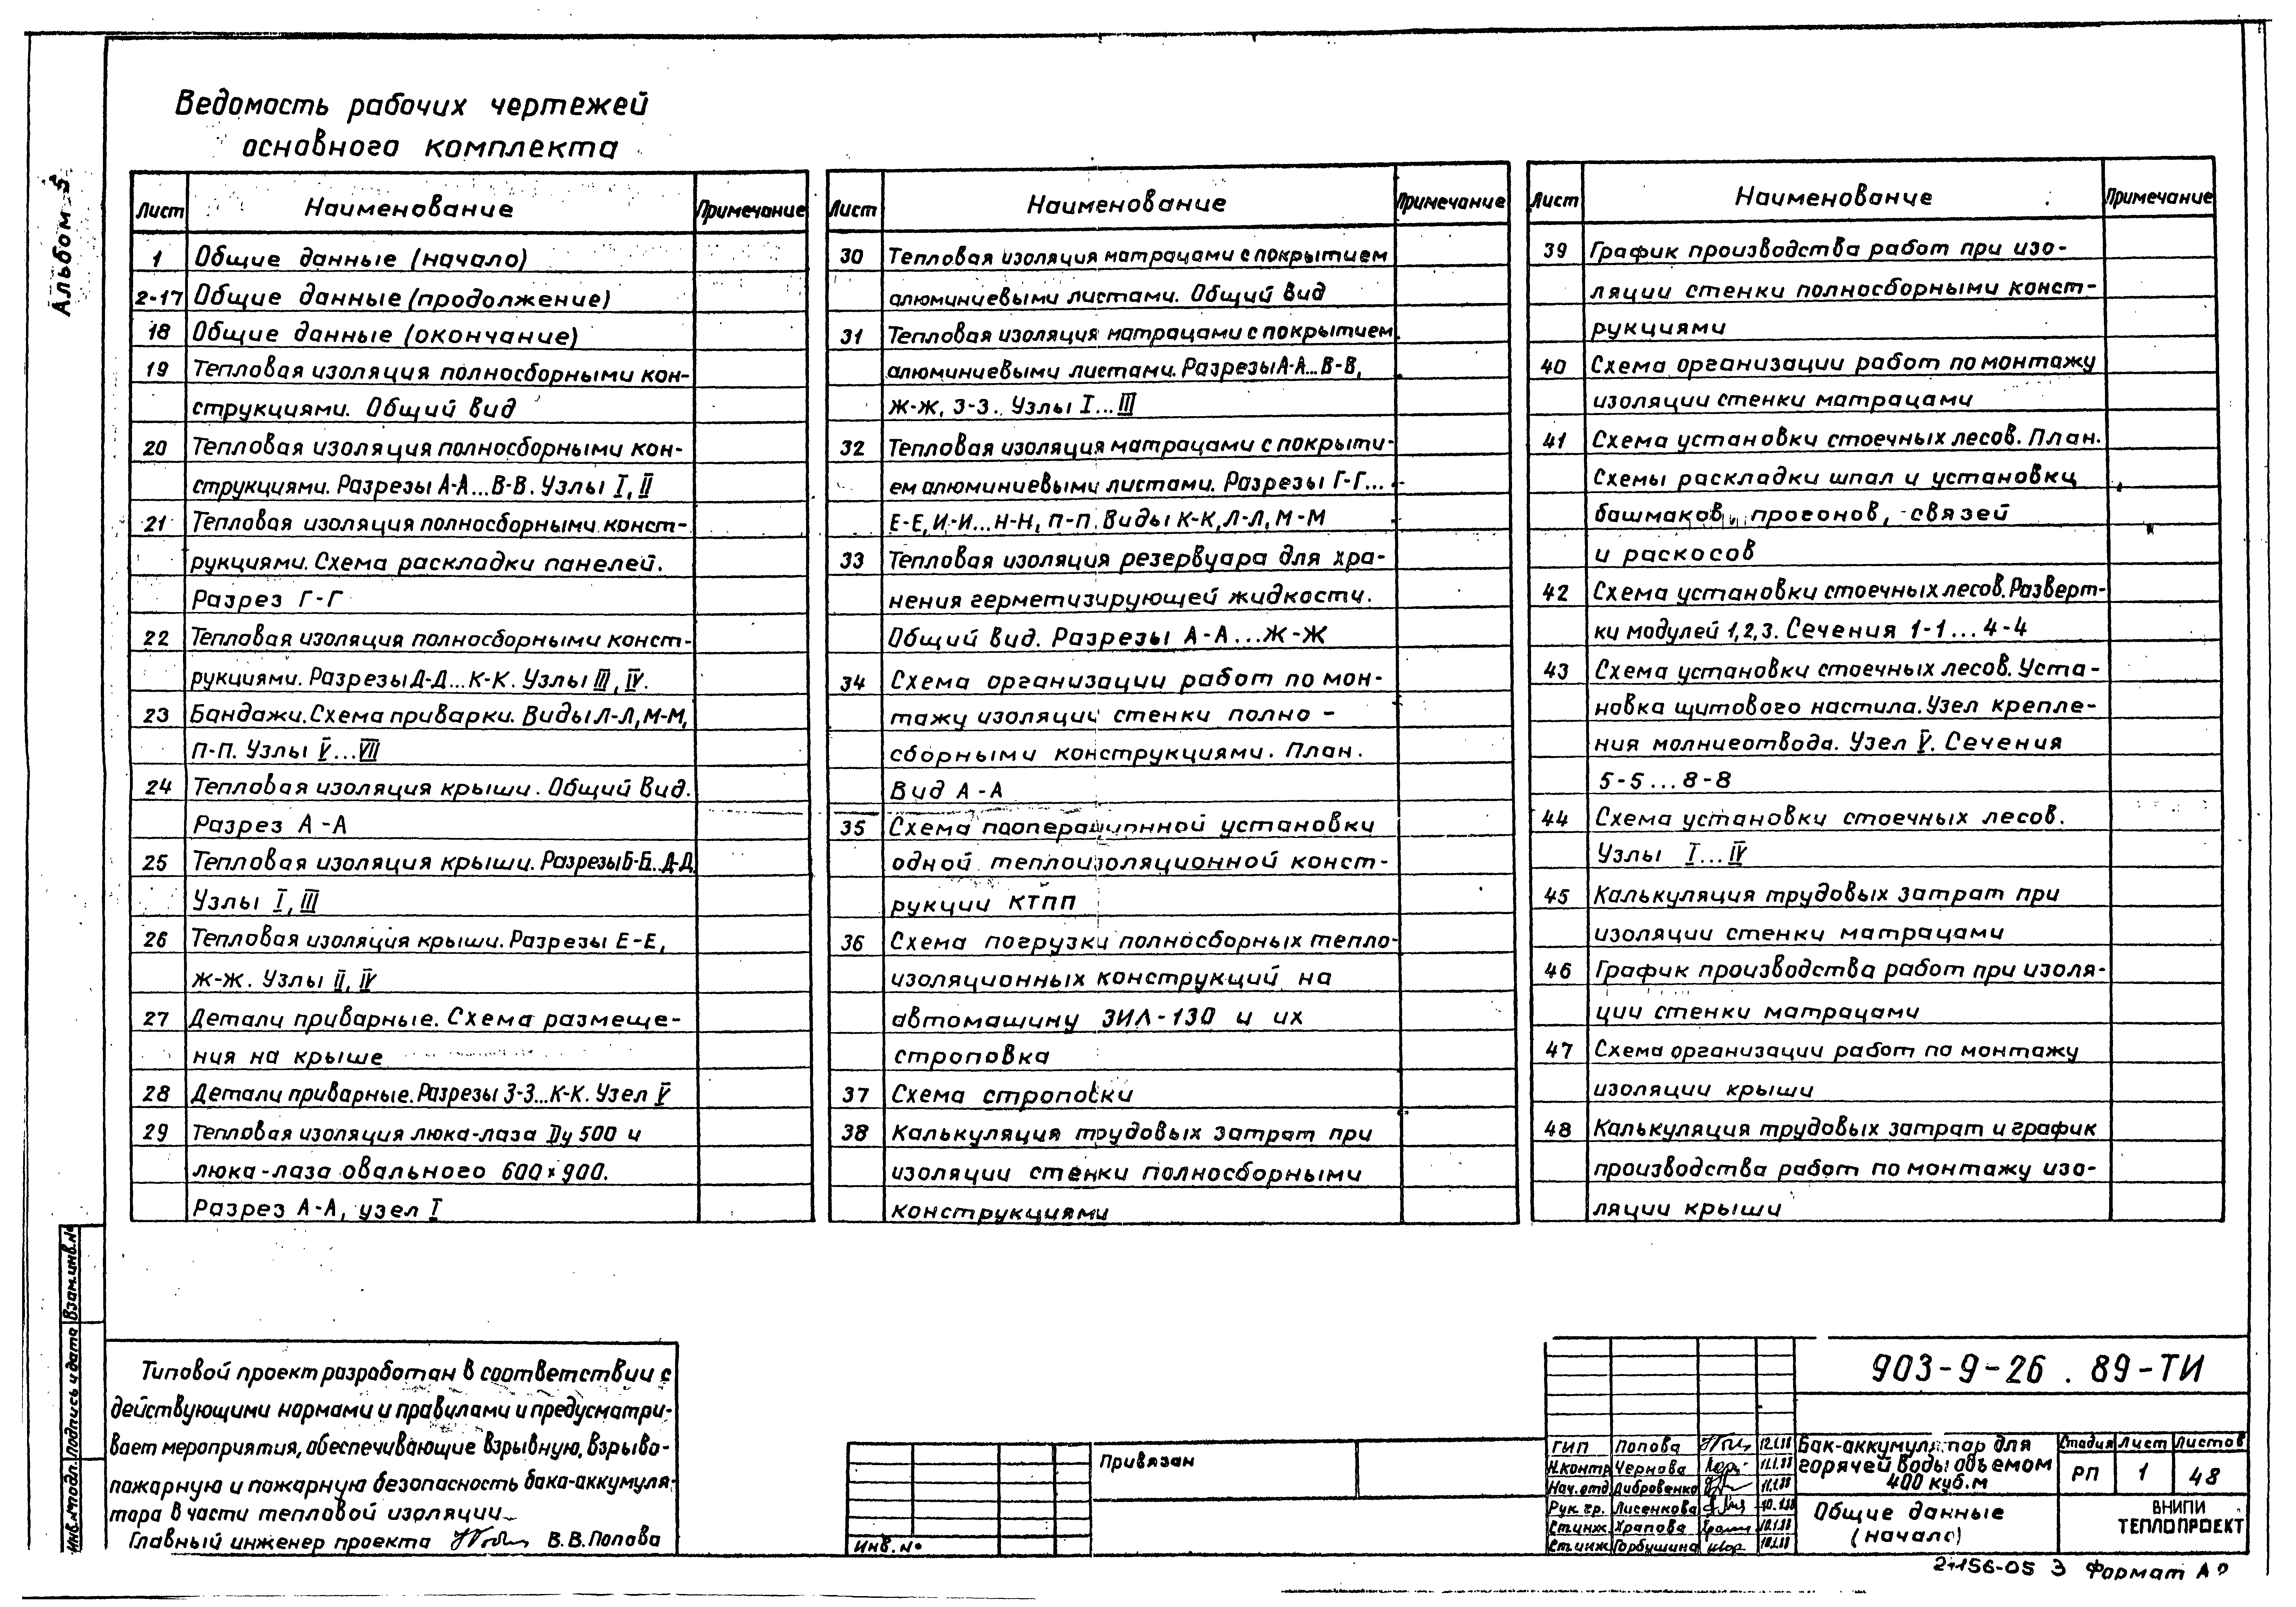 Альбом 5
Ведомость рабочих чертежей
основного комплекта
Лист Наименование Примечание
1 Общие данные (начало)
2-17 Общие данные (продолжение)
18 Общие данные (окончание)
19 Тепловая изоляция полносборными кон-
струкциями. Общий вид
20 Тепловая изоляция полносборными кон-
струкциями. Разрезы А-А...В-В. Узлы I, II
21 Тепловая изоляция полносборными конст-
рукциями. Схема раскладки панелей.
Разрез Г-Г
22 Тепловая изоляция полносборными конст-
рукциями. Разрезы Д-Д...К-К. Узлы III, IV.
23 Бандажи. Схема приварки. Виды Л-Л, М-М,
П-П. Узлы V...VII
24 Тепловая изоляция крыши. Общий вид.
Разрез А-А
25 Тепловая изоляция крыши. Разрезы Б-Б...Д-Д.
Узлы I, III
26 Тепловая изоляция крыши. Разрезы Е-Е,
Ж-Ж. Узлы II, IV
27 Детали приварные. Схема размеще-
ния на крыше
28 Детали приварные. Разрезы З-З...К-К. Узел V
29 Тепловая изоляция люка-лаза Dу 500 и
люка-лаза овального 600×900.
Разрез А-А, узел I
Лист Наименование Примечание
30 Тепловая изоляция матрацами с покрытием
алюминиевыми листами. Общий вид
31 Тепловая изоляция матрацами с покрытием
алюминиевыми листами. Разрезы А-А...В-В,
Ж-Ж, З-З. Узлы I...III
32 Тепловая изоляция матрацами с покрыти-
ем алюминиевыми листами. Разрезы Г-Г...
Е-Е, И-И...Н-Н, П-П. Виды К-К, Л-Л, М-М
33 Тепловая изоляция резервуара для хра-
нения герметизирующей жидкости.
Общий вид. Разрезы А-А...Ж-Ж
34 Схема организации работ по мон-
тажу изоляции стенки полно-
сборными конструкциями. План.
Вид А-А
35 Схема пооперационной установки
одной теплоизоляционной конст-
рукции КТПП
36 Схема погрузки полносборных тепло-
изоляционных конструкций на
автомашину ЗИЛ-130 и их
строповка
37 Схема строповки
38 Калькуляция трудовых затрат при
изоляции стенки полносборными
конструкциями
Лист Наименование Примечание
39 График производства работ при изо-
ляции стенки полносборными конст-
рукциями
40 Схема организации работ по монтажу
изоляции стенки матрацами
41 Схема установки стоечных лесов. План.
Схемы раскладки шпал и установки
башмаков, прогонов, связей
и раскосов
42 Схема установки стоечных лесов. Разверт-
ки модулей 1, 2, 3. Сечения 1-1...4-4
43 Схема установки стоечных лесов. Уста-
новка щитового настила. Узел крепле-
ния молниеотвода. Узел V. Сечения
5-5...8-8
44 Схема установки стоечных лесов.
Узлы I...IV
45 Калькуляция трудовых затрат при
изоляции стенки матрацами
46 График производства работ при изоля-
ции стенки матрацами
47 Схема организации работ по монтажу
изоляции крыши
48 Калькуляция трудовых затрат и график
производства работ по монтажу изо-
ляции крыши
Инв.№подл. Подпись и дата Взам.инв.№
Типовой проект разработан в соответствии с
действующими нормами и правилами и предусматри-
вает мероприятия, обеспечивающие взрывную, взрыво-
пожарную и пожарную безопасность бака-аккумуля-
тора в части тепловой изоляции
Главный инженер проекта В.В.Попова
Привязан
Инв.№
903-9-26.89-ТИ
ГИП Попова 12.1.88
Н.контр Чернова 11.1.88
Нач.отд Дибровенко 11.1.88
Рук. гр. Лисенкова 10.1.88
Ст.инж. Храпова 10.1.88
Ст.инж Горбушина 10.1.88
Бак-аккумулятор для
горячей воды объемом
400 куб.м
Стадия Лист Листов
РП 1 48
Общие данные
(начало)
ВНИПИ
ТЕПЛОПРОЕКТ
-05 3 Формат